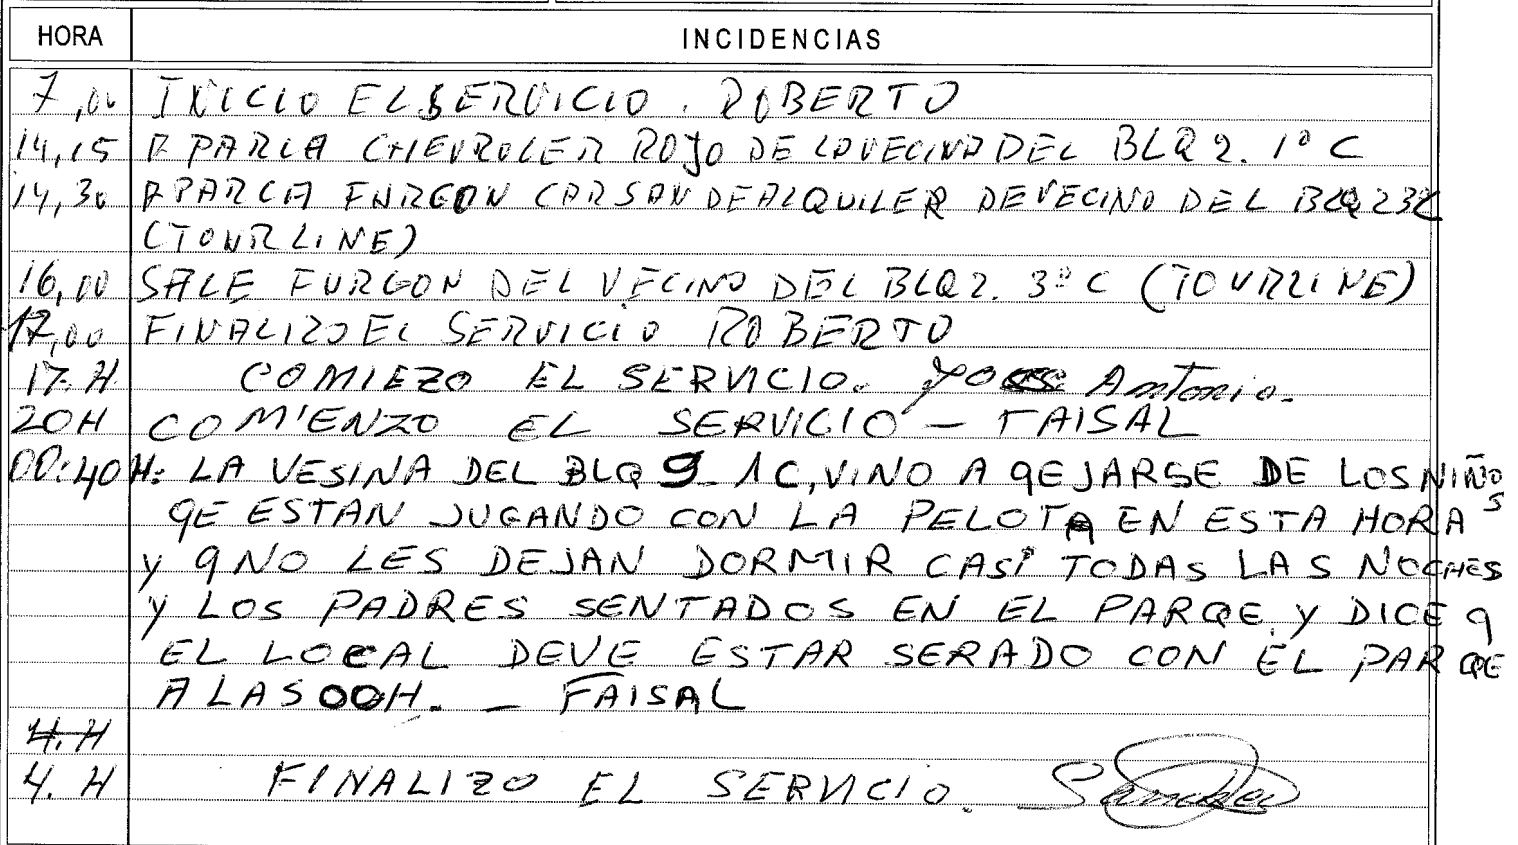 HORA INCIDENCIAS
7,00 INICIO EL SERVICIO. ROBERTO
14,15 APARCA CHEVROLER ROJO DE LO VECINO DEL BLQ 2. 1º C
14,30 APARCA FURGON CARSAN DE ALQUILER DE VECINO DEL BLQ 2 3C
(TOURLINE)
16,00 SALE FURGON DEL VECINO DEL BLQ 2. 3º C (TOURLINE)
17,00 FINALIZO EL SERVICIO ROBERTO
17. H COMIEZO EL SERVICIO. Jose Antonio.
20H COMIENZO EL SERVICIO - FAISAL
00:40 H: LA VESINA DEL BLQ 9- 1C, VINO A QEJARSE DE LOS NIÑOS
QE ESTAN JUGANDO CON LA PELOTA EN ESTA HORA
Y Q NO LES DEJAN DORMIR CASI TODAS LAS NOCHES
Y LOS PADRES SENTADOS EN EL PARQE. Y DICE Q
EL LOCAL DEVE ESTAR SERADO CON EL PARQE
A LAS 00H. - FAISAL
4. H
4. H FINALIZO EL SERVICIO. Sanchez